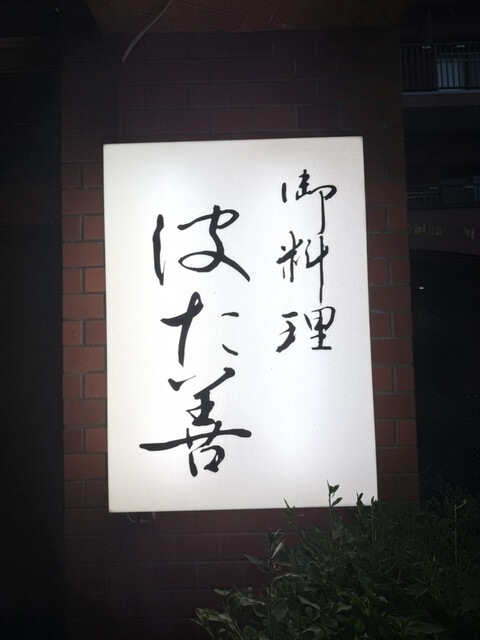 御料理
波た善